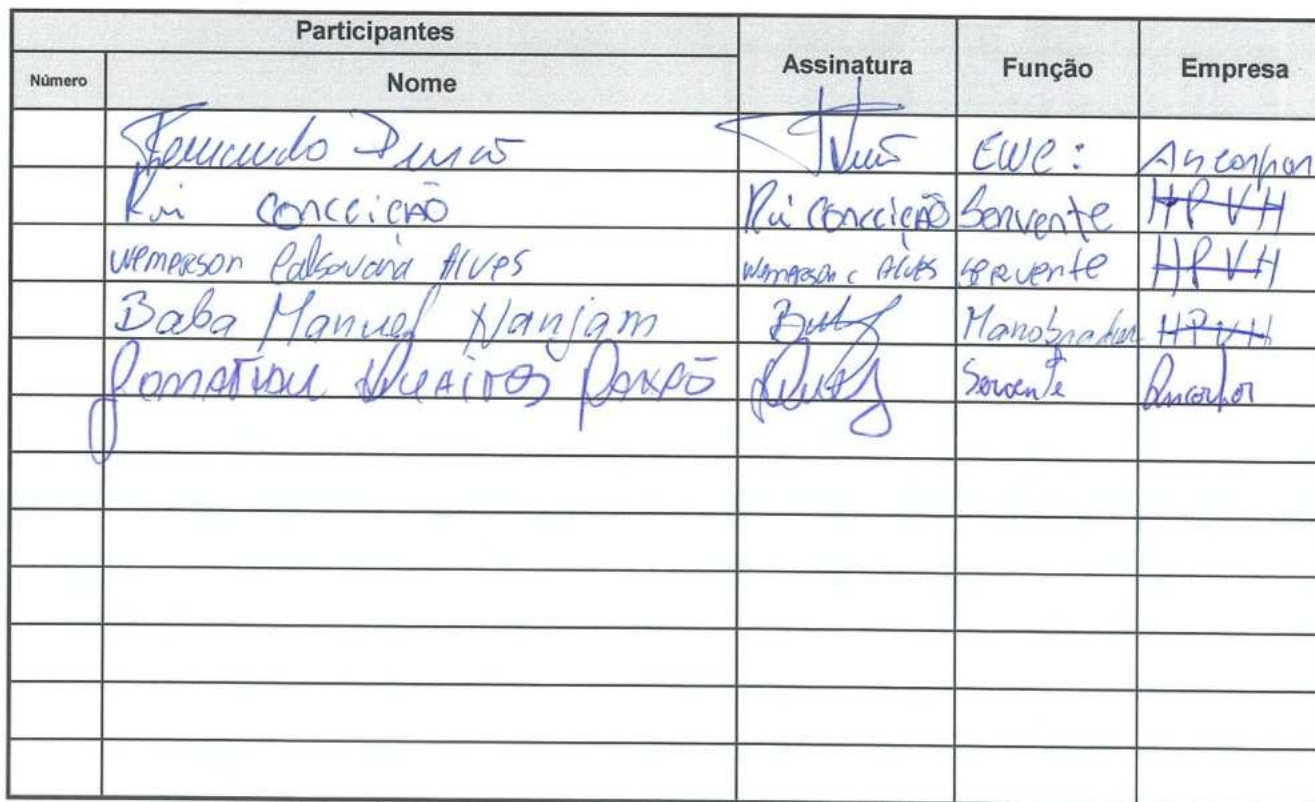 Participantes
Assinatura Função Empresa
Número Nome
Fernando EWC: Ancorpor
Rui CONCEIÇÃO Rui CONCEIÇÃO Servente HPVH
Wemerson Calsavara Alves Wemerson C Alves Servente HPVH
Baba Manuel Nanjam Manobrador HPVH
Servente Ancorpor